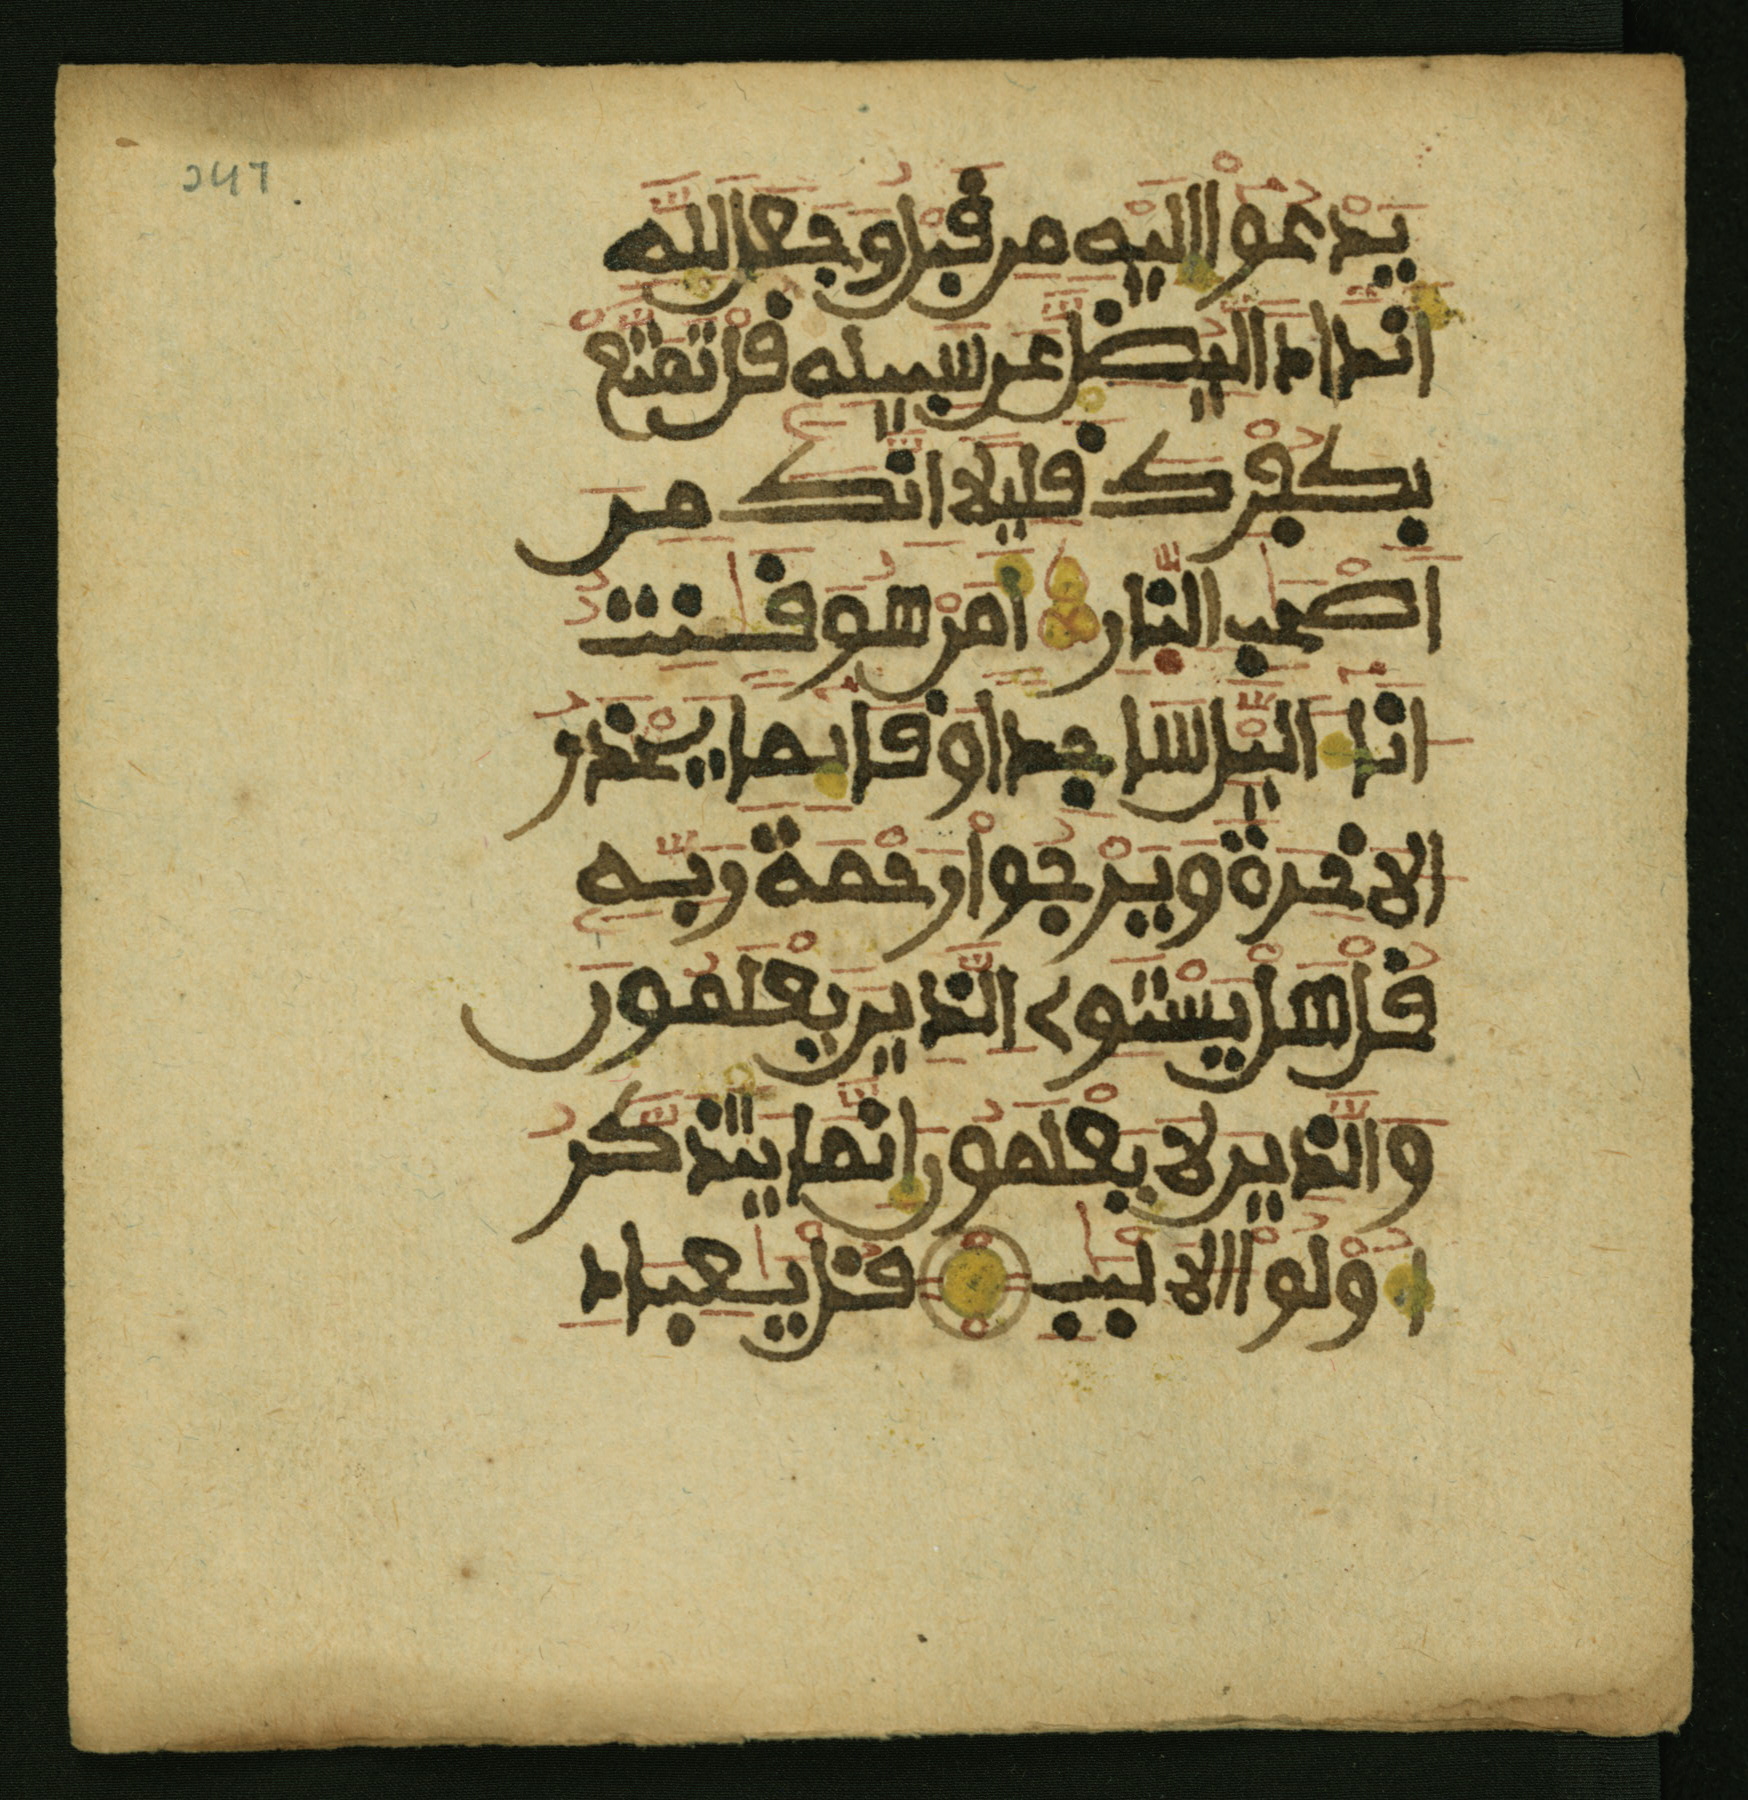 يدعوا اليه من قبل وجعل لله
اندادا ليضل عن سبيله قل تمتع
بكفرك قليلا انك من
اصحب النار امن هو قنت
انا اليل ساجدا وقايما يحذر
الاخرة ويرجوا رحمة ربه
قل هل يستوے الذين يعلمون
والذين لا يعلمون انما يتذكر
اولوا الالبب قل يعباد